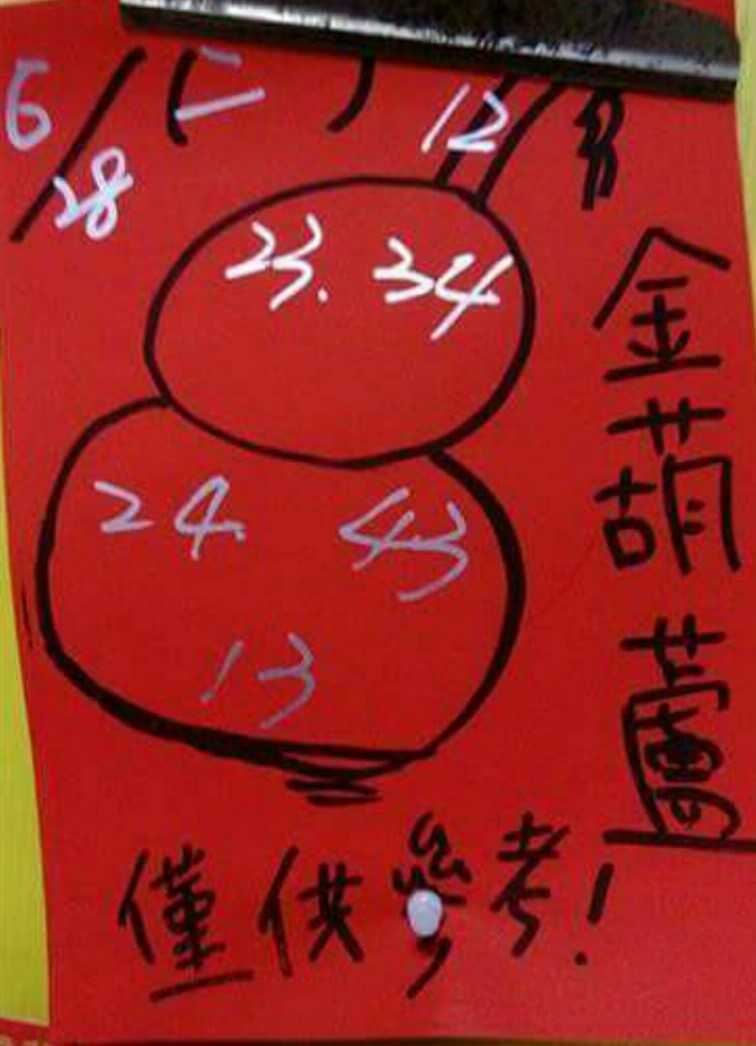 6/28 (二) 12
23. 34
24. 43
13
金葫蘆
僅供參考!